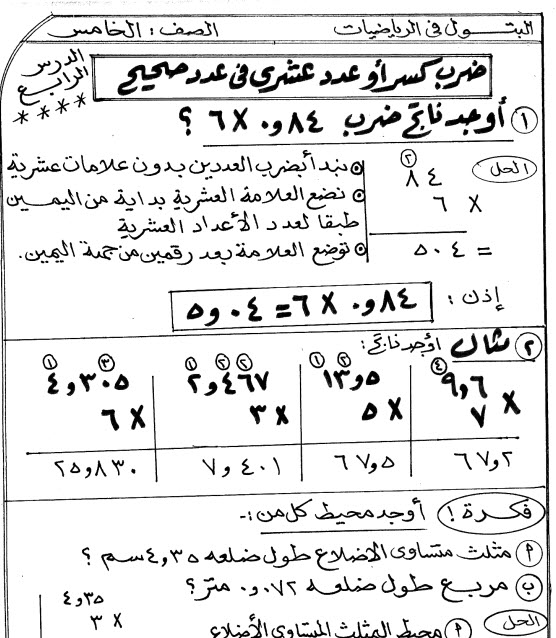 البتول في الرياضيات الصف : الخامس
الدرس الرابع
****
ضرب كسر أو عدد عشري في عدد صحيح
١ أوجد ناتج ضرب ٨٤و٠ × ٦ ؟
الحل
٢
٨٤
٦ ×
٥٠٤ =
نبدأ بضرب العددين بدون علامات عشرية
نضع العلامة العشرية بداية من اليمين
طبقا لعدد الأعداد العشرية
توضع العلامة بعد رقمين من جهة اليمين.
إذن : ٨٤و٠ × ٦ = ٠٤و٥
٢ مثال أوجد ناتج:
٤
٩,٦
٧ ×
٢و٦٧
١ ٢
١٣,٥
٥ ×
٥و٦٧
١ ٢ ٢
٤٦٧و٢
٣ ×
٤٠١و٧
١ ٣
٣٠٥و٤
٦ ×
٨٣٠و٢٥
فكرة ! أوجد محيط كل من :-
٩ مثلث متساوى الاضلاع طول ضلعه ٤,٣٥ سم ؟
ب مربع طول ضلعه ٠٧٢و٠ متر؟
الحل ٩ محيط المثلث المتساوى الأضلاع
٤,٣٥
٣ ×